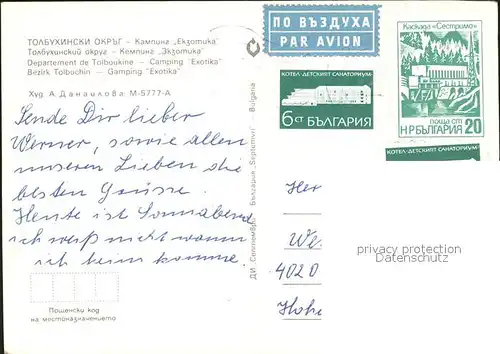 ТОЛБУХИНСКИ ОКРЪГ — Кампинг „Екзотика"
Толбухинский округ — Кемпинг „Экзотика"
Departement de Tolboukine — Camping "Exotika"
Bezirk Tolbuchin — Camping "Exotika"
Худ. А. Данаилова М-5777-А
ПО ВЪЗДУХА
PAR AVION
Каскада „Сестримо"
поща ст
НР БЪЛГАРИЯ 20
КОТЕЛ-ДЕТСКИЯТ САНАТОРИУМ
6 СТ БЪЛГАРИЯ
КОТЕЛ-ДЕТСКИЯТ САНАТОРИУМ
Sende Dir lieber
Werner, sowie allen
unseren Lieben die
besten Grüsse.
Heute ist Sonnabend
ich weiß nicht wann
ich heim komme.
ДИ „Септември" България „Septemvri" Bulgaria
Her
We
4020
Hohe
privacy protection
Datenschutz
Пощенски код
на местоназначението